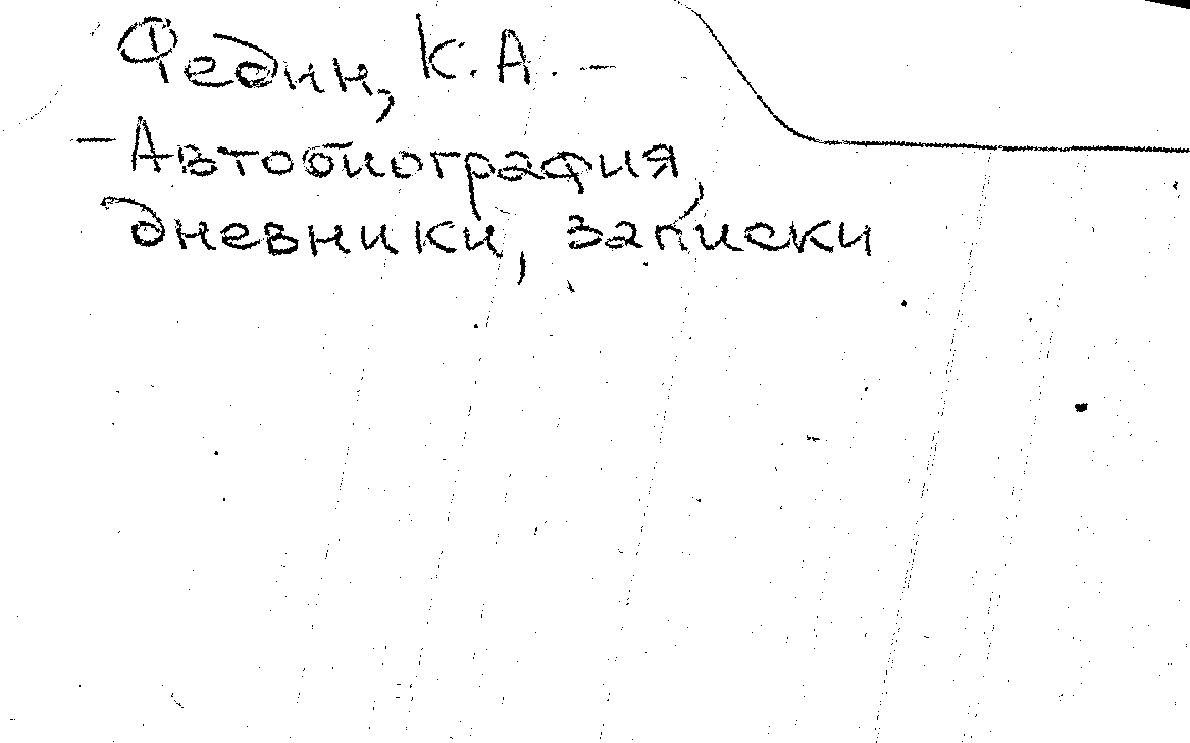 Федин, К.А. –
– Автобиография,
дневники, записки